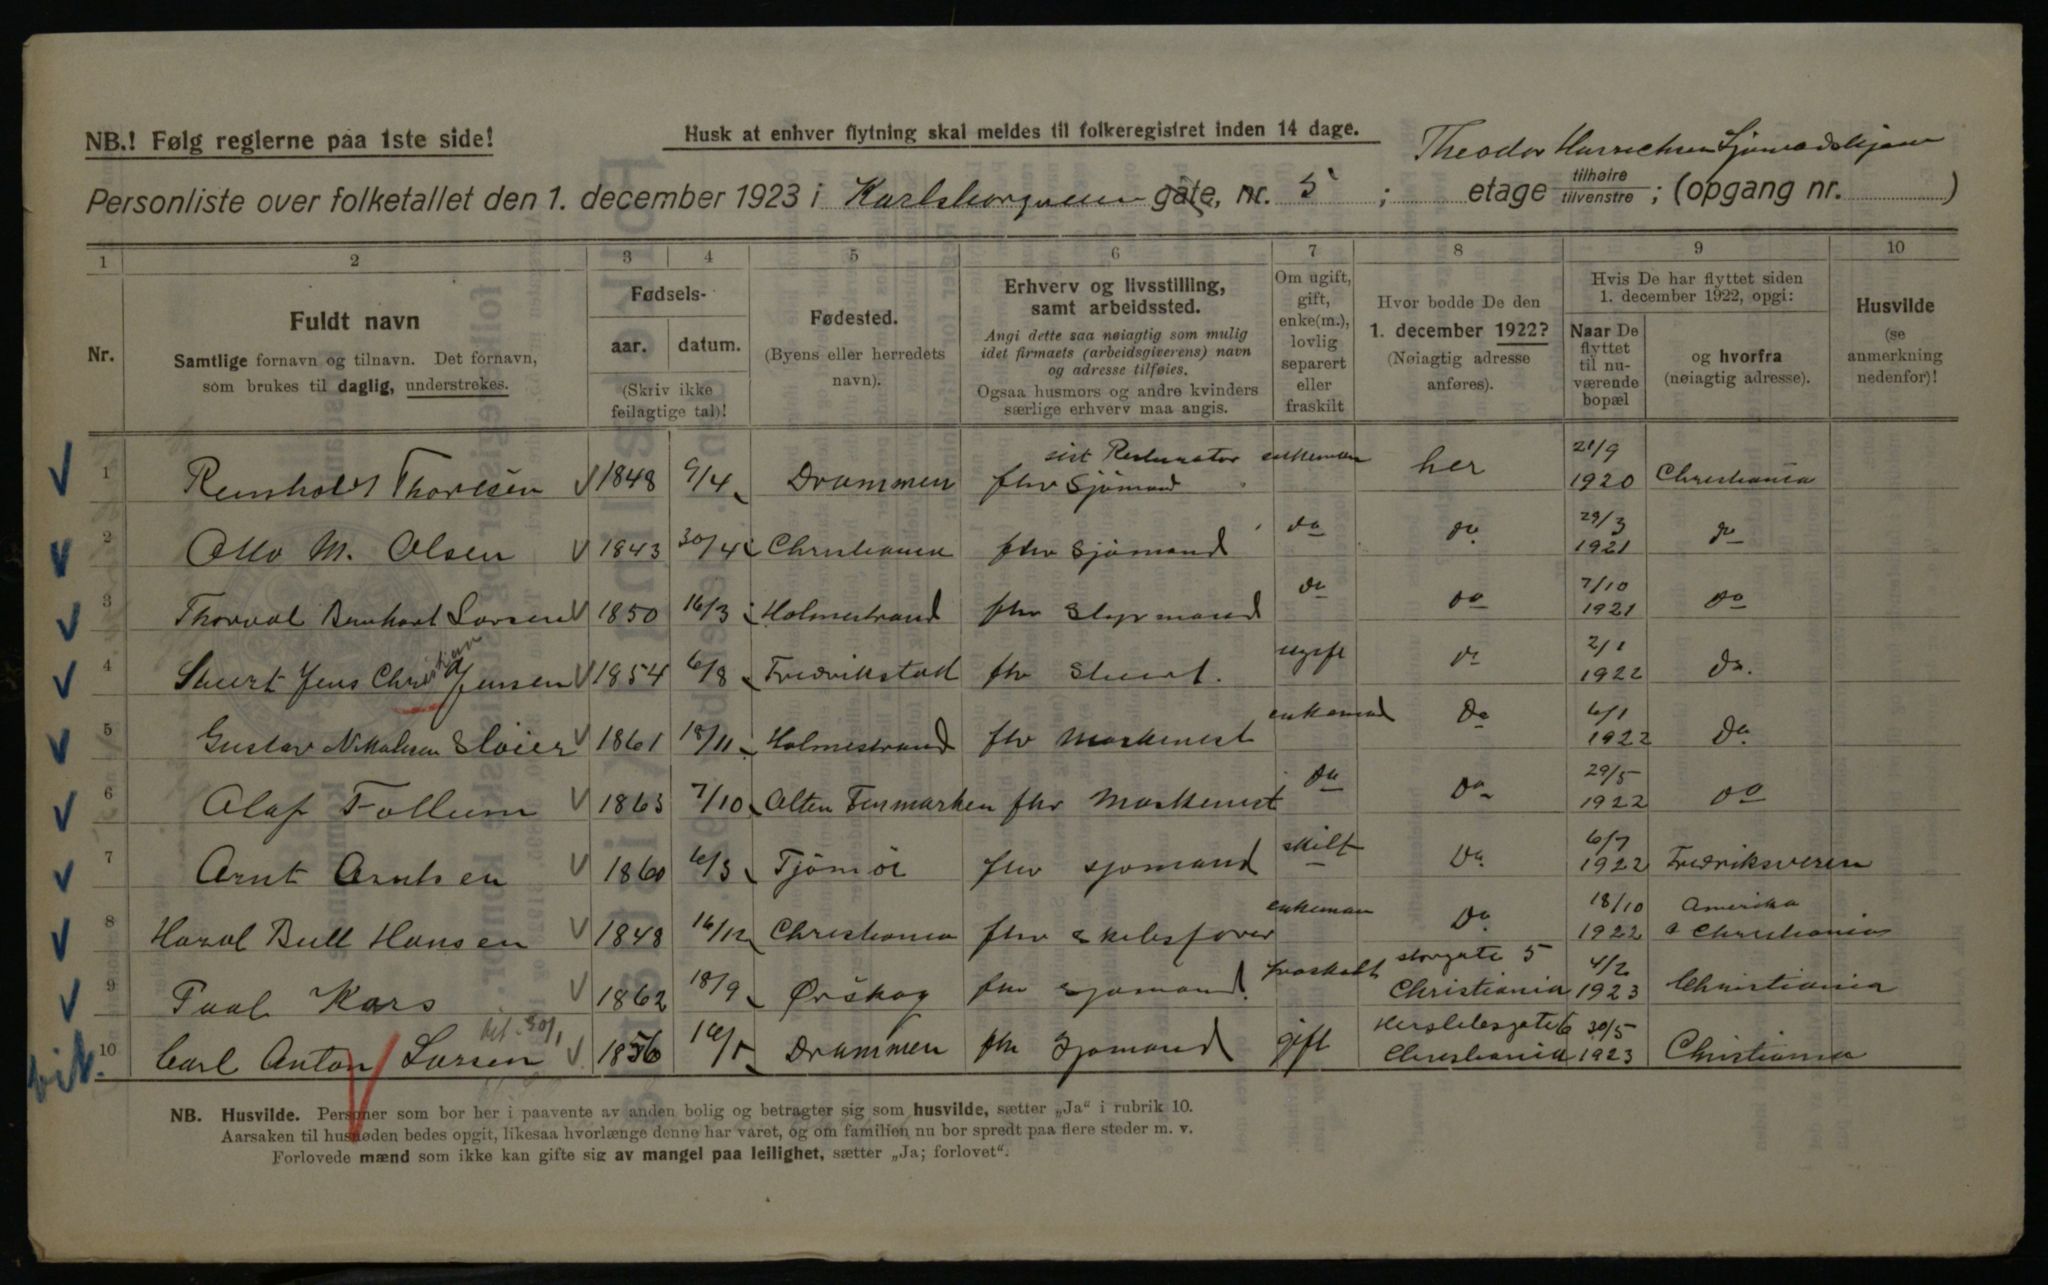 NB.! Følg reglerne paa 1ste side!
Husk at enhver flytning skal meldes til folkeregistret inden 14 dage.
Theodor Sjømandshjem
Personliste over folketallet den 1. december 1923 i Karlsborgveien gate, nr. 5 ; etage tilhøire / tilvenstre ; (opgang nr. )
1 2 3 4 5 6 7 8 9 10
Nr.
Fuldt navn
Samtlige fornavn og tilnavn. Det fornavn,
som brukes til daglig, understrekes.
Fødsels-
aar. datum.
(Skriv ikke
feilagtige tal)!
Fødested.
(Byens eller herredets
navn).
Erhverv og livsstilling,
samt arbeidssted.
Angi dette saa nøiagtig som mulig
idet firmaets (arbeidsgiverens) navn
og adresse tilføies.
Ogsaa husmors og andre kvinders
særlige erhverv maa angis.
Om ugift,
gift,
enke(m.),
lovlig
separert
eller
fraskilt
Hvor bodde De den
1. december 1922?
(Nøiagtig adresse
anføres).
Hvis De har flyttet siden
1. december 1922, opgi:
Naar De
flyttet
til nu-
værende
bopæl
og hvorfra
(nøiagtig adresse).
Husvilde
(se
anmerkning
nedenfor)!
1 Reinholdt Thorlsen 1848 9/4 Drammen fhv Sjømand sist Resturatør enkeman her 21/9 1920 Christiania
2 Otto M. Olsen 1843 30/4 Christiania fhv Sjømand do do 29/3 1921 do
3 Thorval Bernhart Larsen 1850 16/3 Holmestrand fhv Styrmand do do 7/10 1921 do
4 Stuert Jens Christian Jensen 1854 6/8 Fredrikstad fhv Stuert. ugift do 2/1 1922 do.
5 Gustav Nikolaisen Sløier 1861 18/11 Holmestrand fhv Maskenist enkemand do 6/1 1922 do
6 Olaf Follum 1863 7/10 Alten Finmarken fhv Maskenist do do 29/5 1922 do
7 Arnt Arntsen 1860 6/3 Tjømø fhv sjomand skilt Do 6/7 1922 Fredriksværn
8 Haral Bull Hansen 1848 16/12 Christiania fhv skibsfører enkeman Do. 18/10 1922 Amerika & Christiania
9 Paal Kars 1862 18/9 Ørskog fhv sjomand fraskilt storgate 5 Christiania 4/2 1923 Christiania
10 Carl Anton Larsen 1856 Drammen fhv Sjomand gift Herslebsgate 6 Christiania 30/5 1923 Christiania
NB. Husvilde. Personer som bor her i paavente av anden bolig og betragter sig som husvilde, sætter „Ja“ i rubrik 10.
Aarsaken til husnøden bedes opgit, likesaa hvorlænge denne har varet, og om familien nu bor spredt paa flere steder m. v.
Forlovede mænd som ikke kan gifte sig av mangel paa leilighet, sætter „Ja; forlovet“.